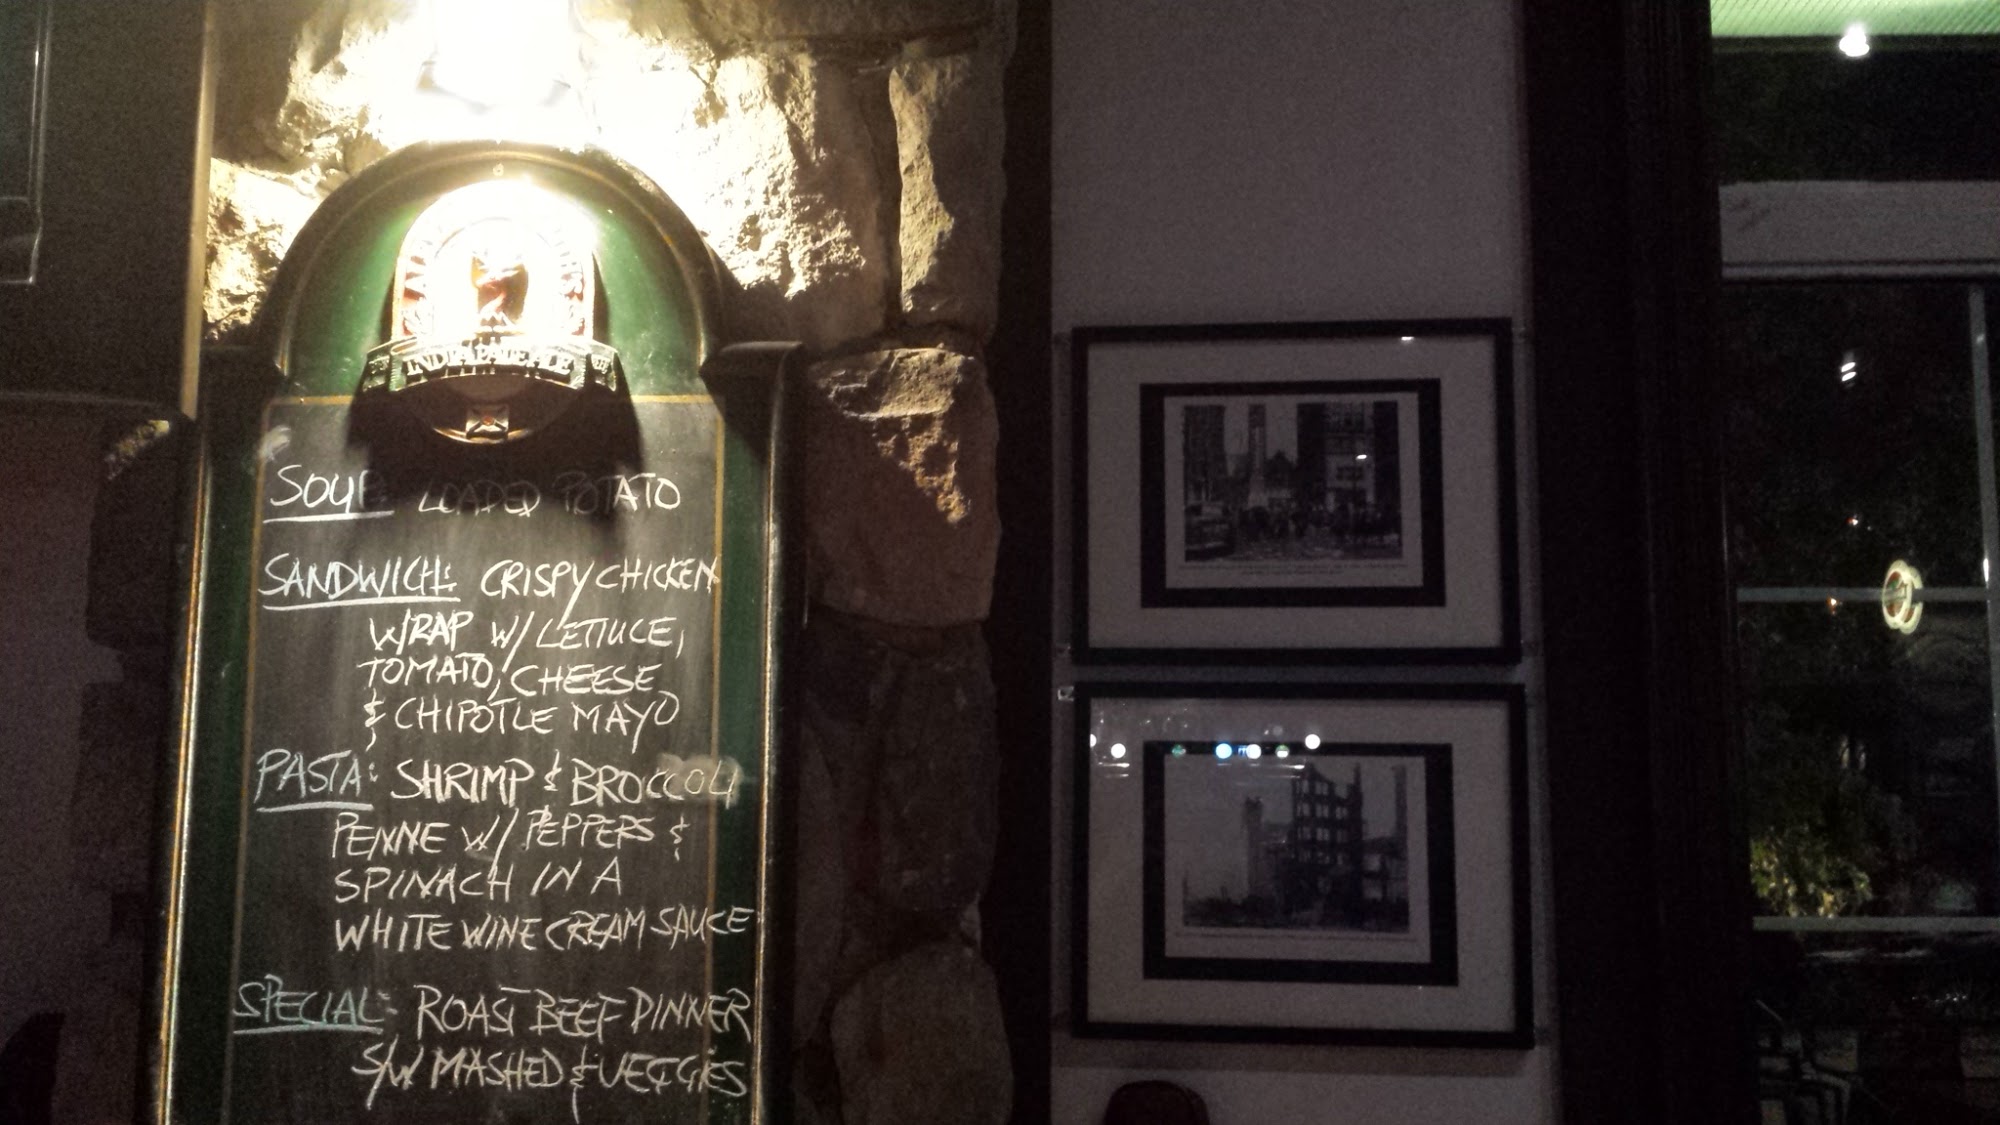 INDIA PALE ALE
SOUP LOADED POTATO
SANDWICH: CRISPY CHICKEN
WRAP W/ LETTUCE,
TOMATO, CHEESE
& CHIPOTLE MAYO
PASTA: SHRIMP & BROCCOLI
PENNE W/ PEPPERS &
SPINACH IN A
WHITE WINE CREAM SAUCE
SPECIAL: ROAST BEEF DINNER
S/W MASHED & VEGGIES